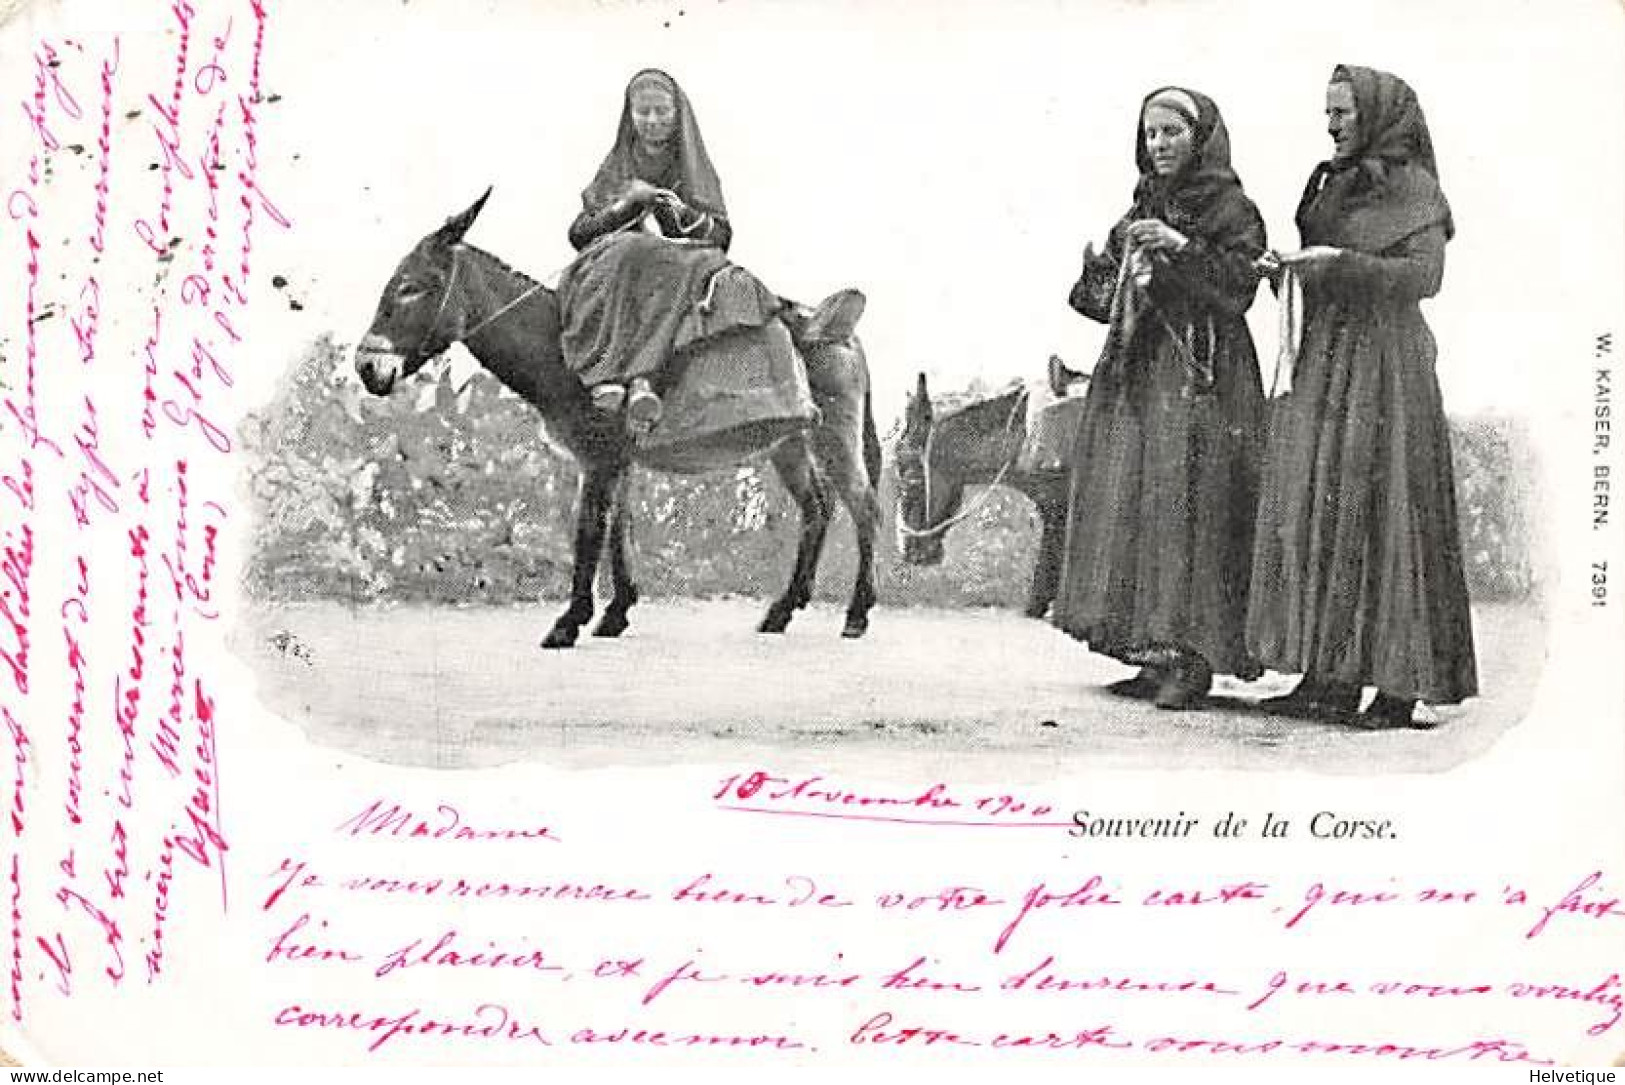 10 Novembre 1900
Souvenir de la Corse.
Madame
Je vous remercie bien de votre jolie carte, qui m'a fait
bien plaisir, et je suis bien heureuse que vous vouliez
correspondre avec moi. Cette carte vous montre
comme sont habillées les femmes du pays;
il y a souvent des types très curieux
et très interressants à voir. Compliments
sincères Marie-Louise Glay Direction de
Ajaccio (Corse) l'Enregistrement
W. KAISER, BERN. 7391
Helvetique